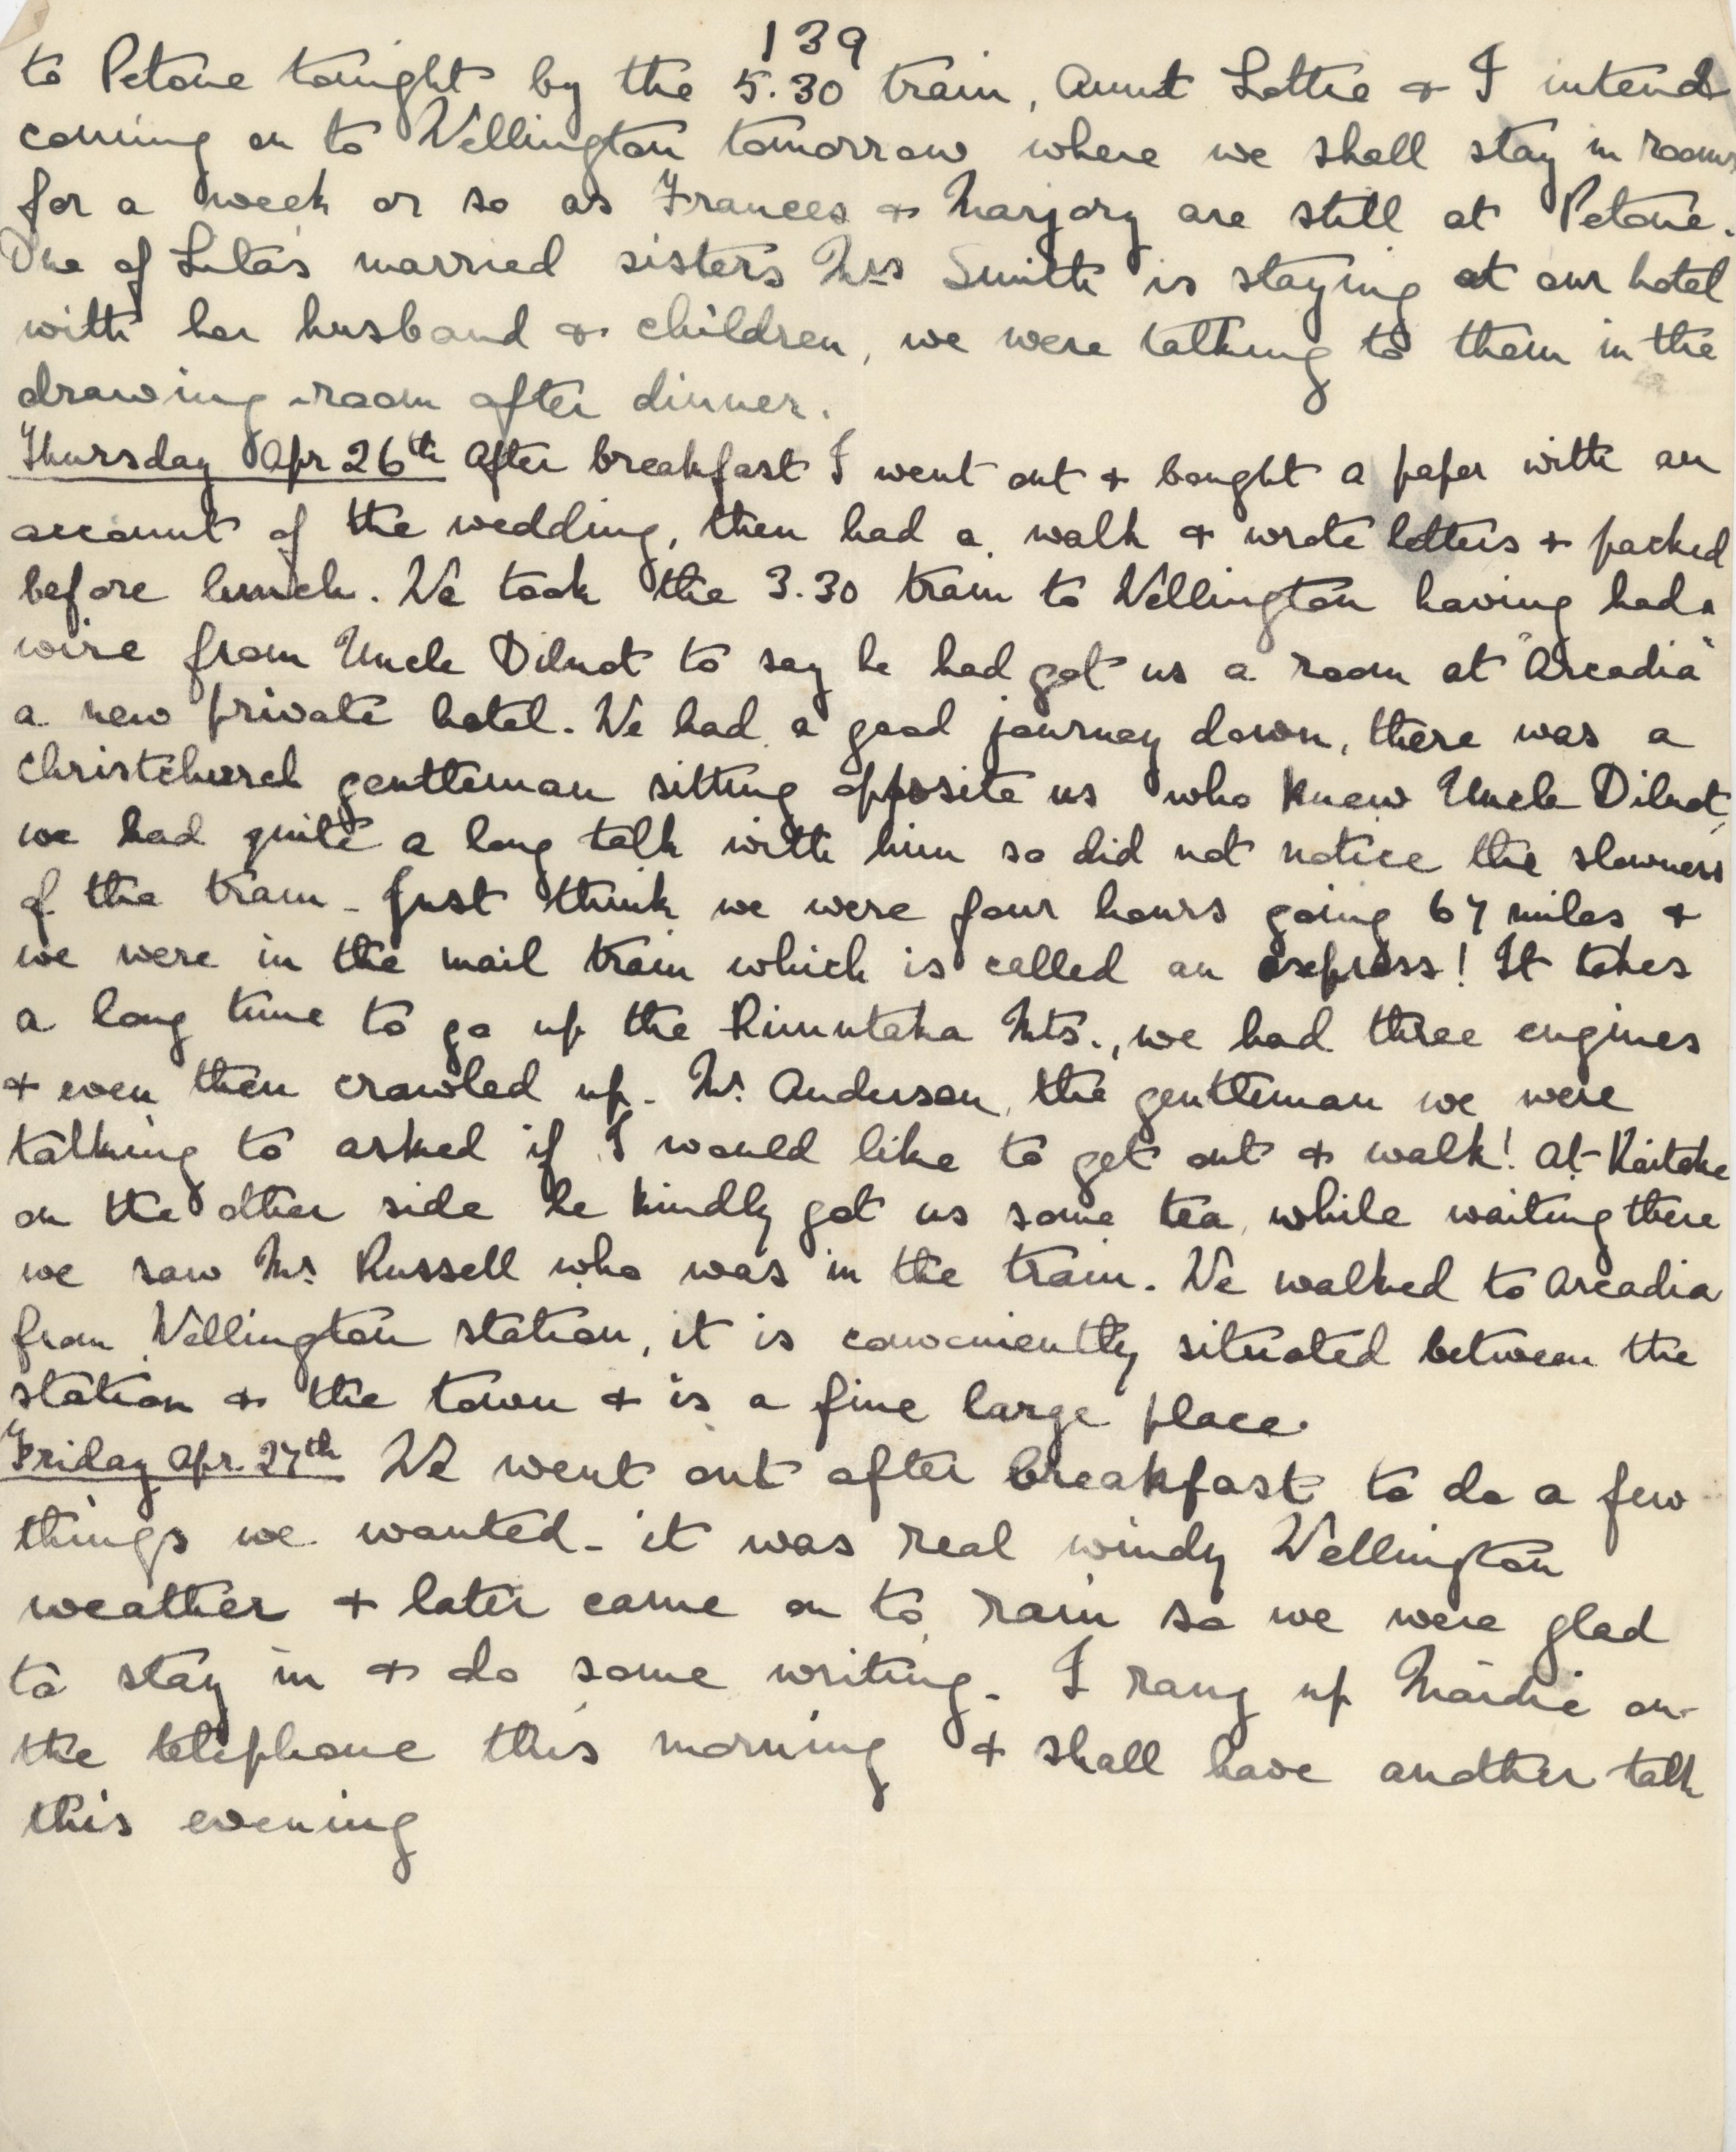 139
to Petone tonight by the 5.30 train, Aunt Lottie & I intend
coming on to Wellington tomorrow where we shall stay in rooms
for a week or so as Frances & Marjory are still at Petone.
One of Lita's married sisters Mrs Smith is staying at our hotel
with her husband & children, we were talking to them in the
drawing-room after dinner.
Thursday Apr 26th After breakfast I went out & bought a paper with an
account of the wedding, then had a walk & wrote letters & packed
before lunch. We took the 3.30 train to Wellington having had a
wire from Uncle Dilnot to say he had got us a room at "Arcadia"
a new private hotel. We had a good journey down, there was a
Christchurch gentleman sitting opposite us who knew Uncle Dilnot,
we had quite a long talk with him so did not notice the slowness
of the train - Just think we were four hours going 67 miles &
we were in the mail train which is called an express! It takes
a long time to go up the Rimutaka Mts., we had three engines
& even then crawled up - Mr. Anderson, the gentleman we were
talking to asked if I would like to get out & walk! At Kaitoke
on the other side he kindly got us some tea, while waiting there
we saw Mr. Russell who was in the train. We walked to Arcadia
from Wellington station, it is conveniently situated between the
station & the town & is a fine large place.
Friday Apr. 27th We went out after breakfast to do a few
things we wanted - it was real windy Wellington
weather & later came on to rain so we were glad
to stay in & do some writing - I rang up Mardie on
the telephone this morning & shall have another talk
this evening